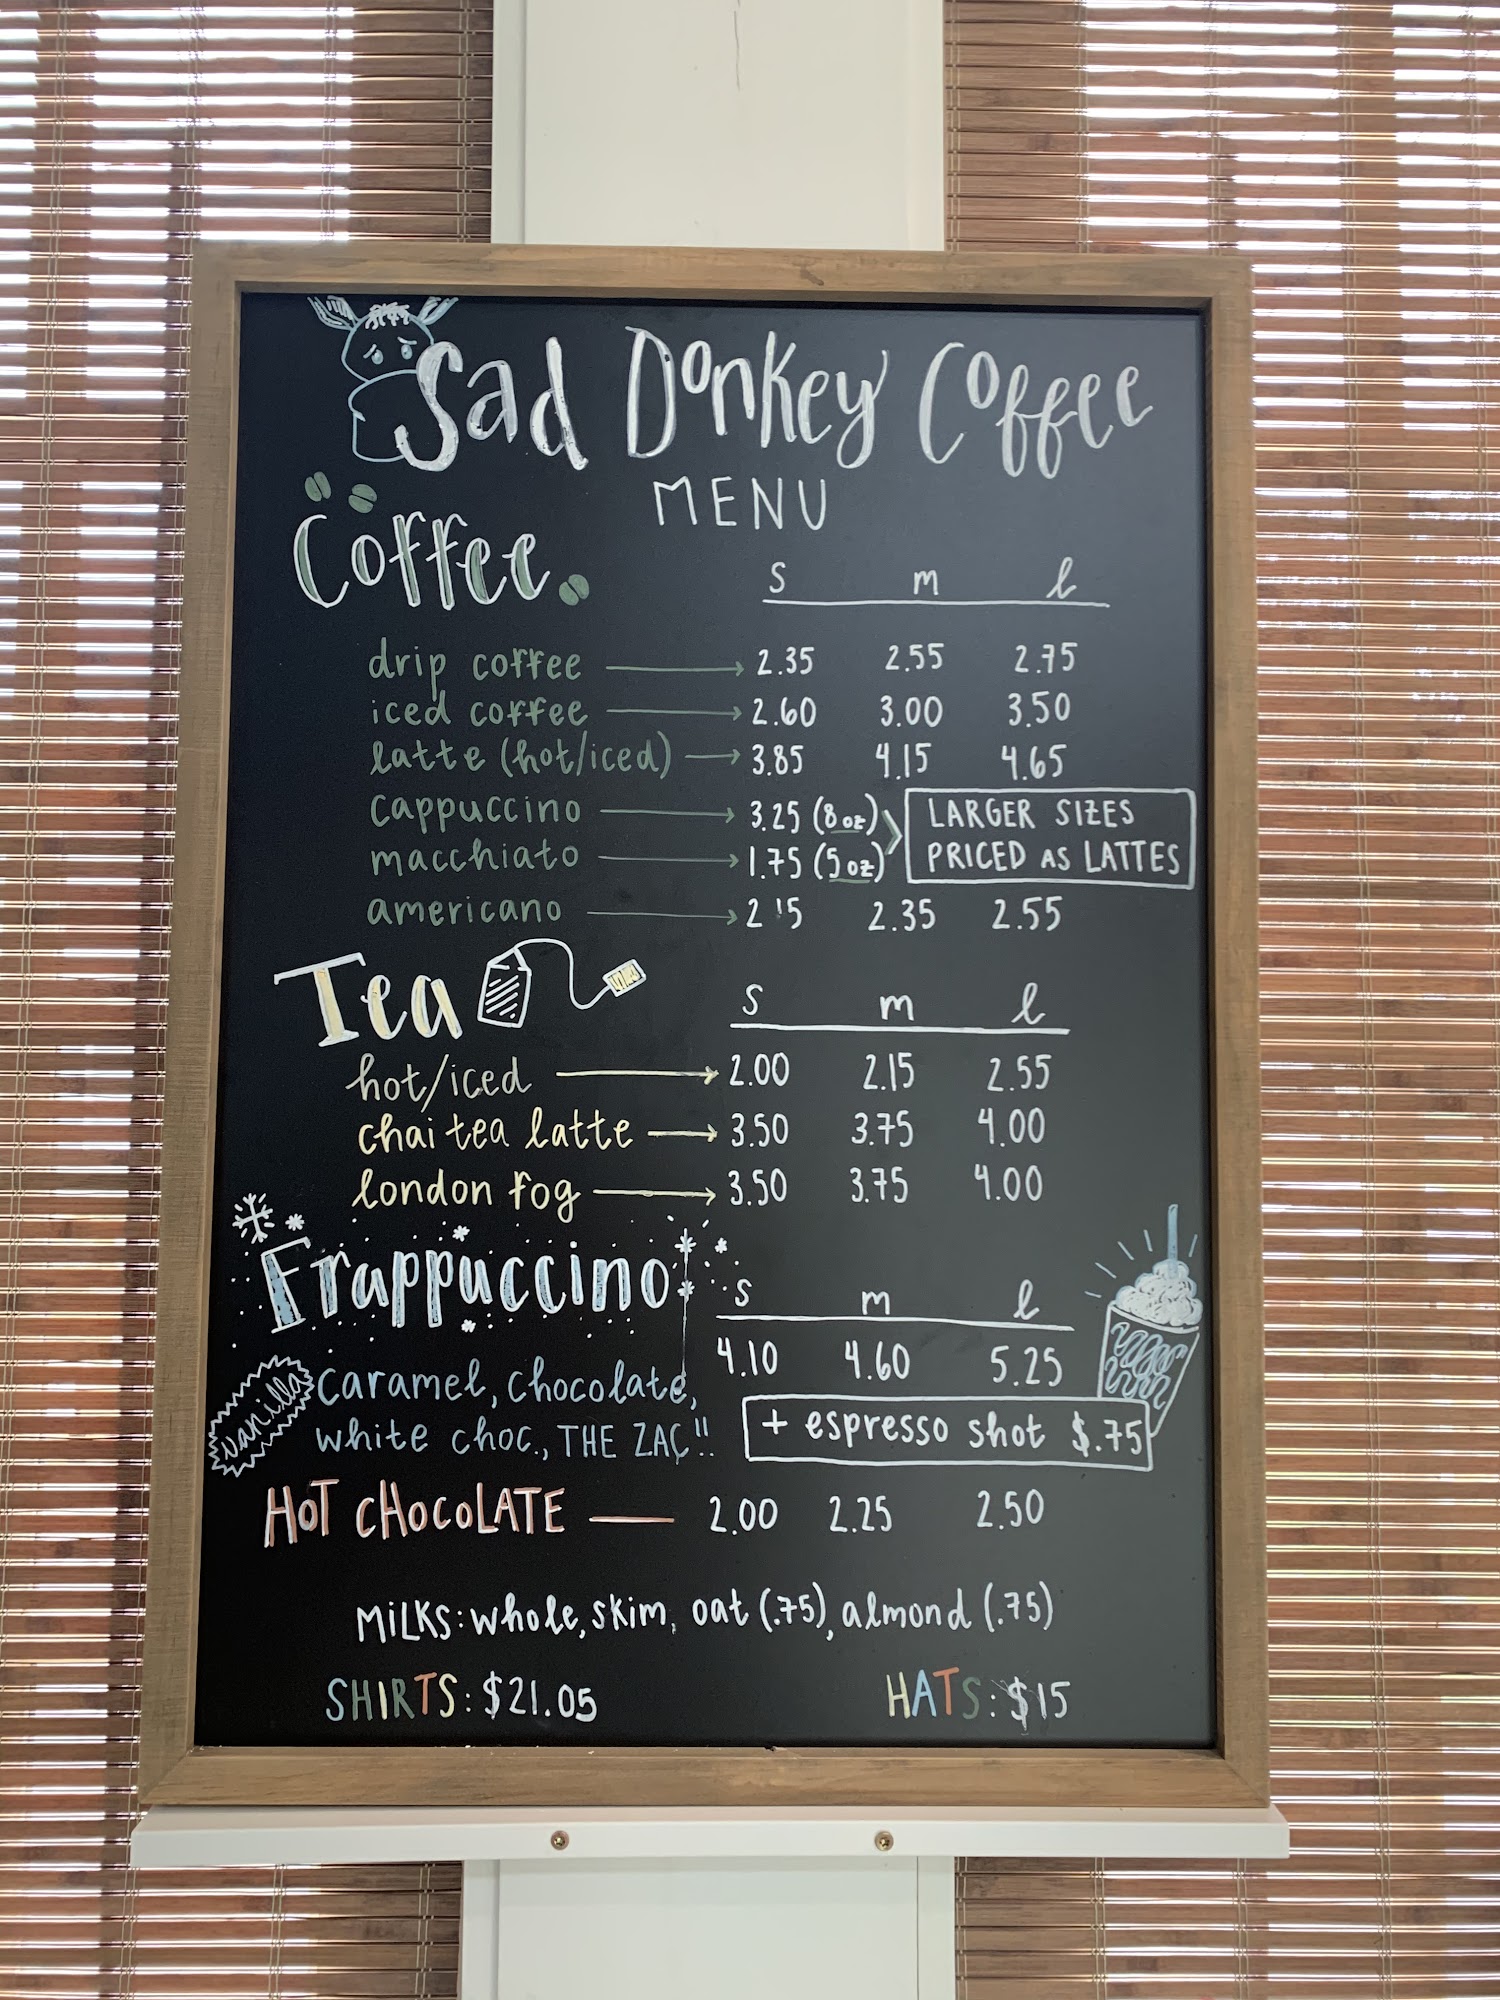 Sad Donkey Coffee
MENU
Coffee
s m l
drip coffee 2.35 2.55 2.75
iced coffee 2.60 3.00 3.50
latte (hot/iced) 3.85 4.15 4.65
cappuccino 3.25 (8 oz) LARGER SIZES
macchiato 1.75 (5 oz) PRICED AS LATTES
americano 2.15 2.35 2.55
Tea
s m l
hot/iced 2.00 2.15 2.55
chai tea latte 3.50 3.75 4.00
london fog 3.50 3.75 4.00
Frappuccino
s m l
4.10 4.60 5.25
vanilla caramel, chocolate,
white choc., THE ZAC!!
+ espresso shot $.75
HOT CHOCOLATE — 2.00 2.25 2.50
MiLKS: whole, skim, oat (.75), almond (.75)
SHIRTS: $21.05 HATS: $15